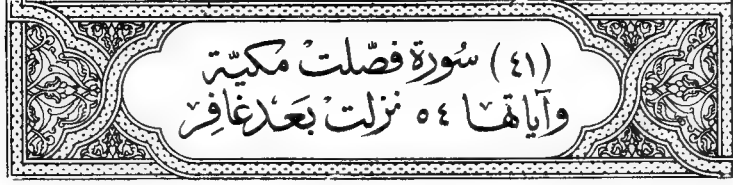 (٤١) سُورَة فصّلت مكيّة
وآياتها ٥٤ نزلت بَعد غافِر